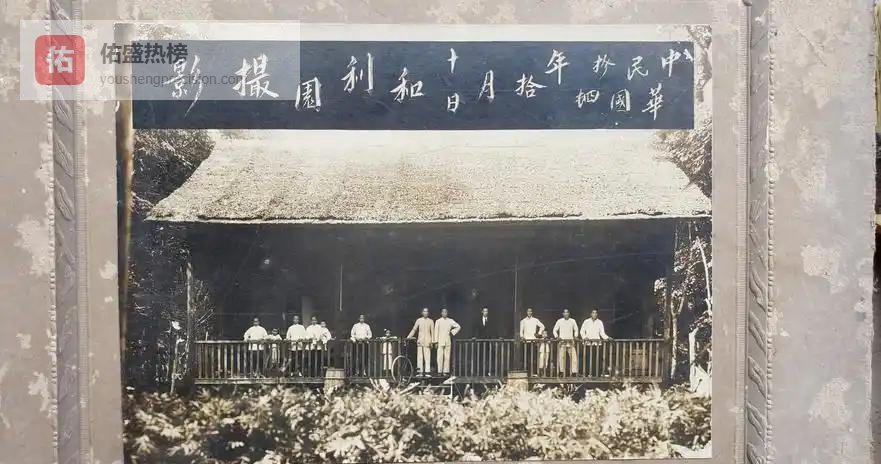 中華民國年拾月十日和利園撮影
佑
佑盛热榜
youshengprecision.com